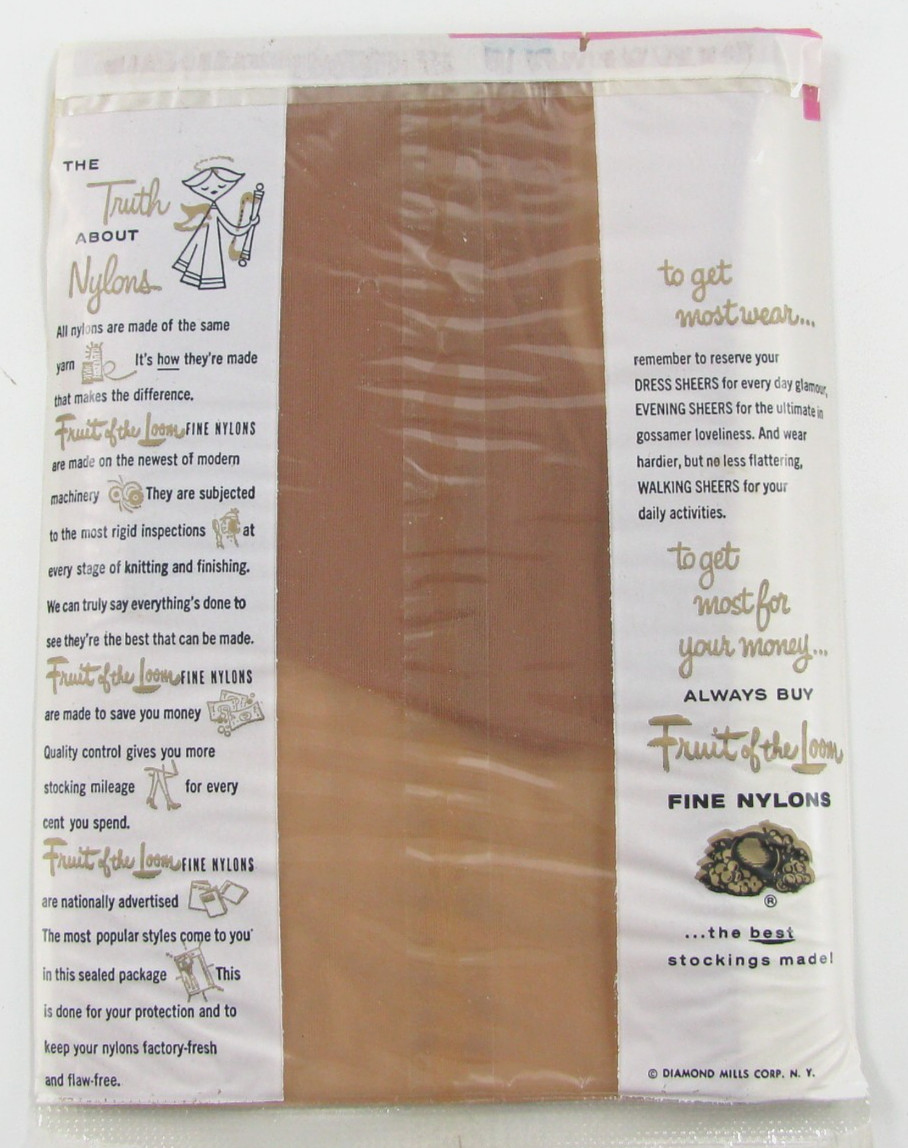 THE
Truth
ABOUT
Nylons
All nylons are made of the same
yarn It's how they're made
that makes the difference.
Fruit of the Loom FINE NYLONS
are made on the newest of modern
machinery They are subjected
to the most rigid inspections at
every stage of knitting and finishing.
We can truly say everything's done to
see they're the best that can be made.
Fruit of the Loom FINE NYLONS
are made to save you money
Quality control gives you more
stocking mileage for every
cent you spend.
Fruit of the Loom FINE NYLONS
are nationally advertised
The most popular styles come to you
in this sealed package This
is done for your protection and to
keep your nylons factory-fresh
and flaw-free.
to get
most wear...
remember to reserve your
DRESS SHEERS for every day glamour,
EVENING SHEERS for the ultimate in
gossamer loveliness. And wear
hardier, but no less flattering,
WALKING SHEERS for your
daily activities.
to get
most for
your money...
ALWAYS BUY
Fruit of the Loom
FINE NYLONS
®
...the best
stockings made!
© DIAMOND MILLS CORP. N. Y.